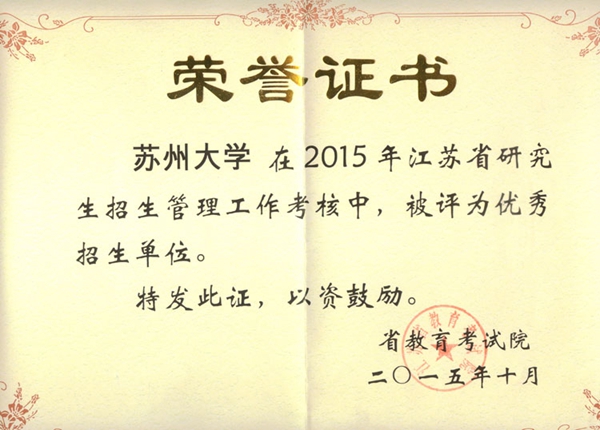 荣誉证书
苏州大学 在2015年江苏省研究
生招生管理工作考核中，被评为优秀
招生单位。
特发此证，以资鼓励。
省教育考试院
二〇一五年十月